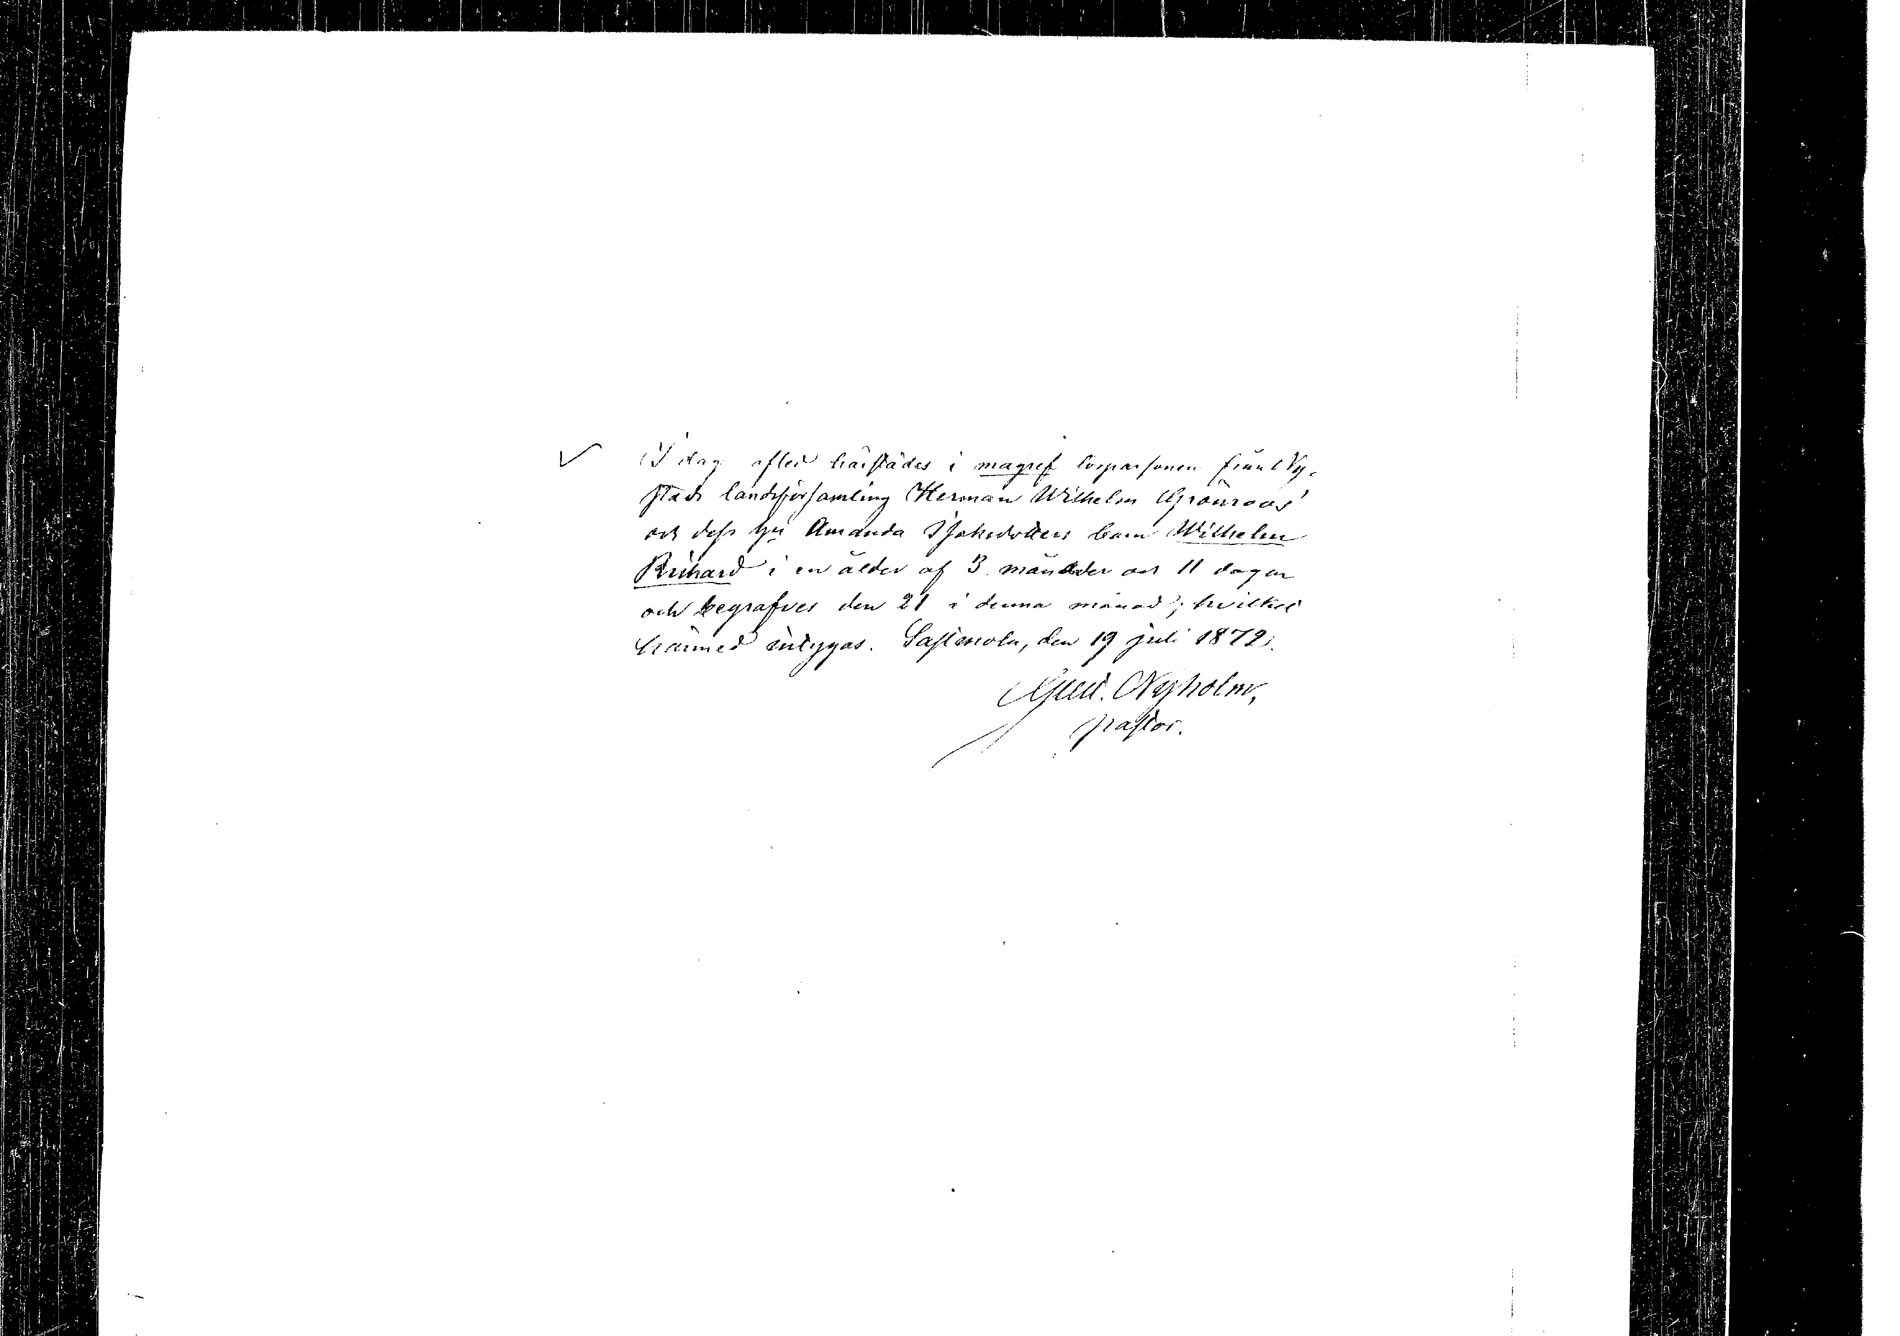 I dag afled härstädes i magref torparsonen från Ny-
stads landsförsamling Herman Wilhelm Grönroos'
och dess hu Amanda barn Wilhelm
Richard i en ålder af 3 månader och 11 dagar
och begrafves den 21 i denna månad; hvilket
härmed intygas. Sastmola, den 19 juli 1872.
Gust. Nyholm,
pastor.